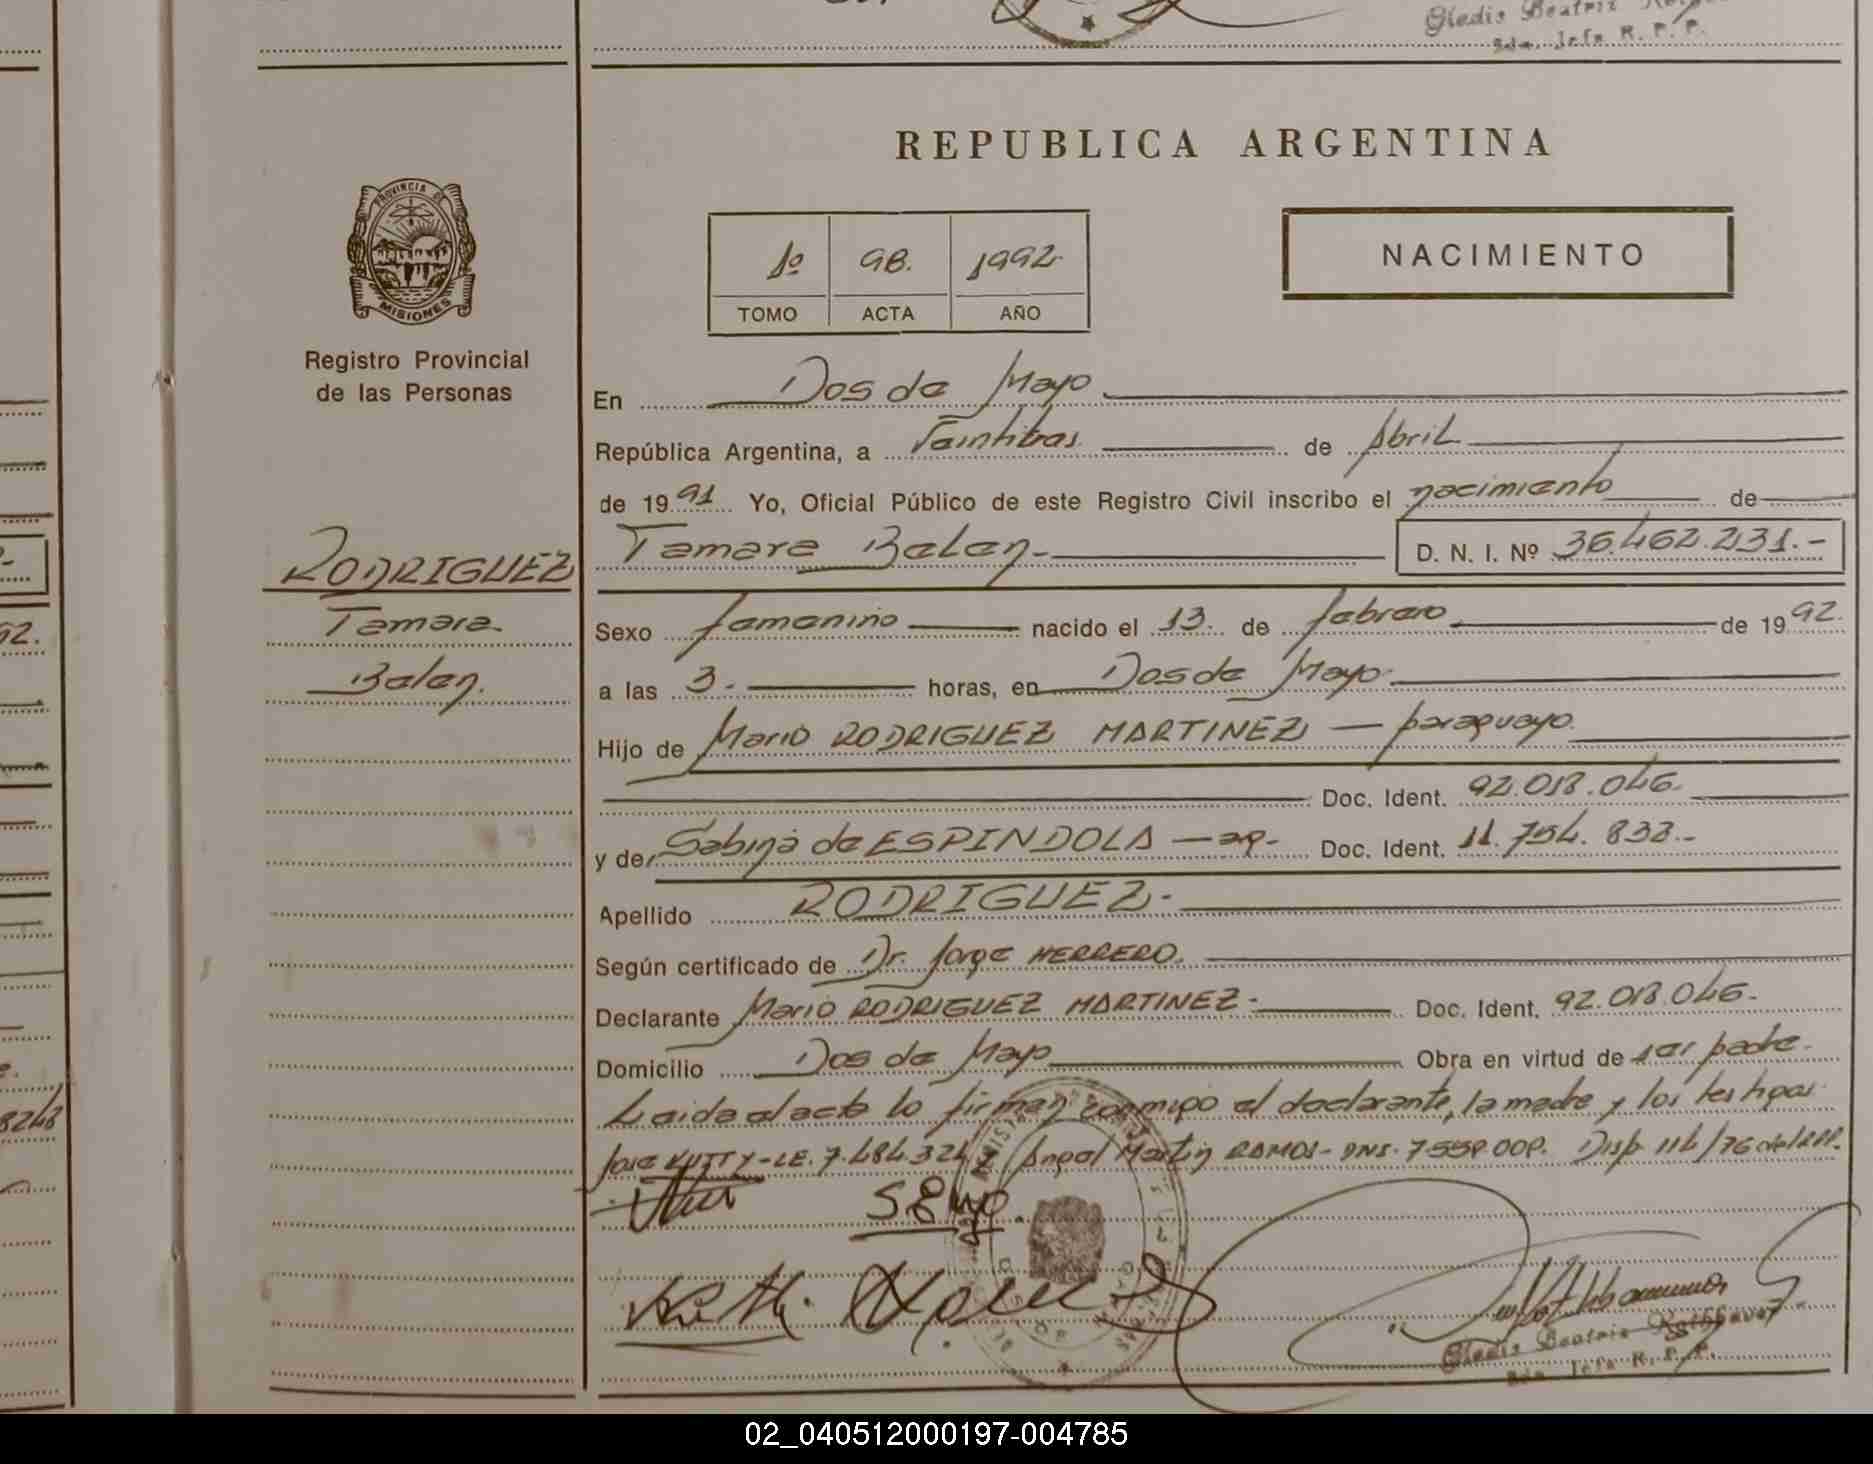 Gladis Beatriz
Sda. Jefa R. P. P.
REPUBLICA ARGENTINA
PROVINCIA DE
MISIONES
1º 98. 1992
TOMO ACTA AÑO
NACIMIENTO
Registro Provincial
de las Personas
En Dos de Mayo
República Argentina, a Veintitres de Abril
de 1991 Yo, Oficial Público de este Registro Civil inscribo el nacimiento de
RODRIGUEZ Tamara Belen- D. N. I. Nº 36.462.231.-
Tamara Sexo femenino nacido el 13. de febrero de 1992.
Belen. a las 3. horas, en Dos de Mayo.
Hijo de Mario RODRIGUEZ MARTINEZ — paraguayo.
Doc. Ident. 92.018.046.
y de Sabina de ESPINDOLA — ar- Doc. Ident. 11.754.832.-
Apellido RODRIGUEZ.-
Según certificado de Dr. Jorge HERRERO.
Declarante Mario RODRIGUEZ MARTINEZ- Doc. Ident. 92.018.046.
Domicilio Dos de Mayo Obra en virtud de ser padre.
Leida el acta lo firman conmigo el declarante, la madre y los testigos
Jose KUTTY-LE. 7.484.324 y Angel Martin RAMOS- DNI. Disp. 114/76 del RPP.
Gladis Beatriz
Sda. Jefa R. P. P.
02_040512000197-004785